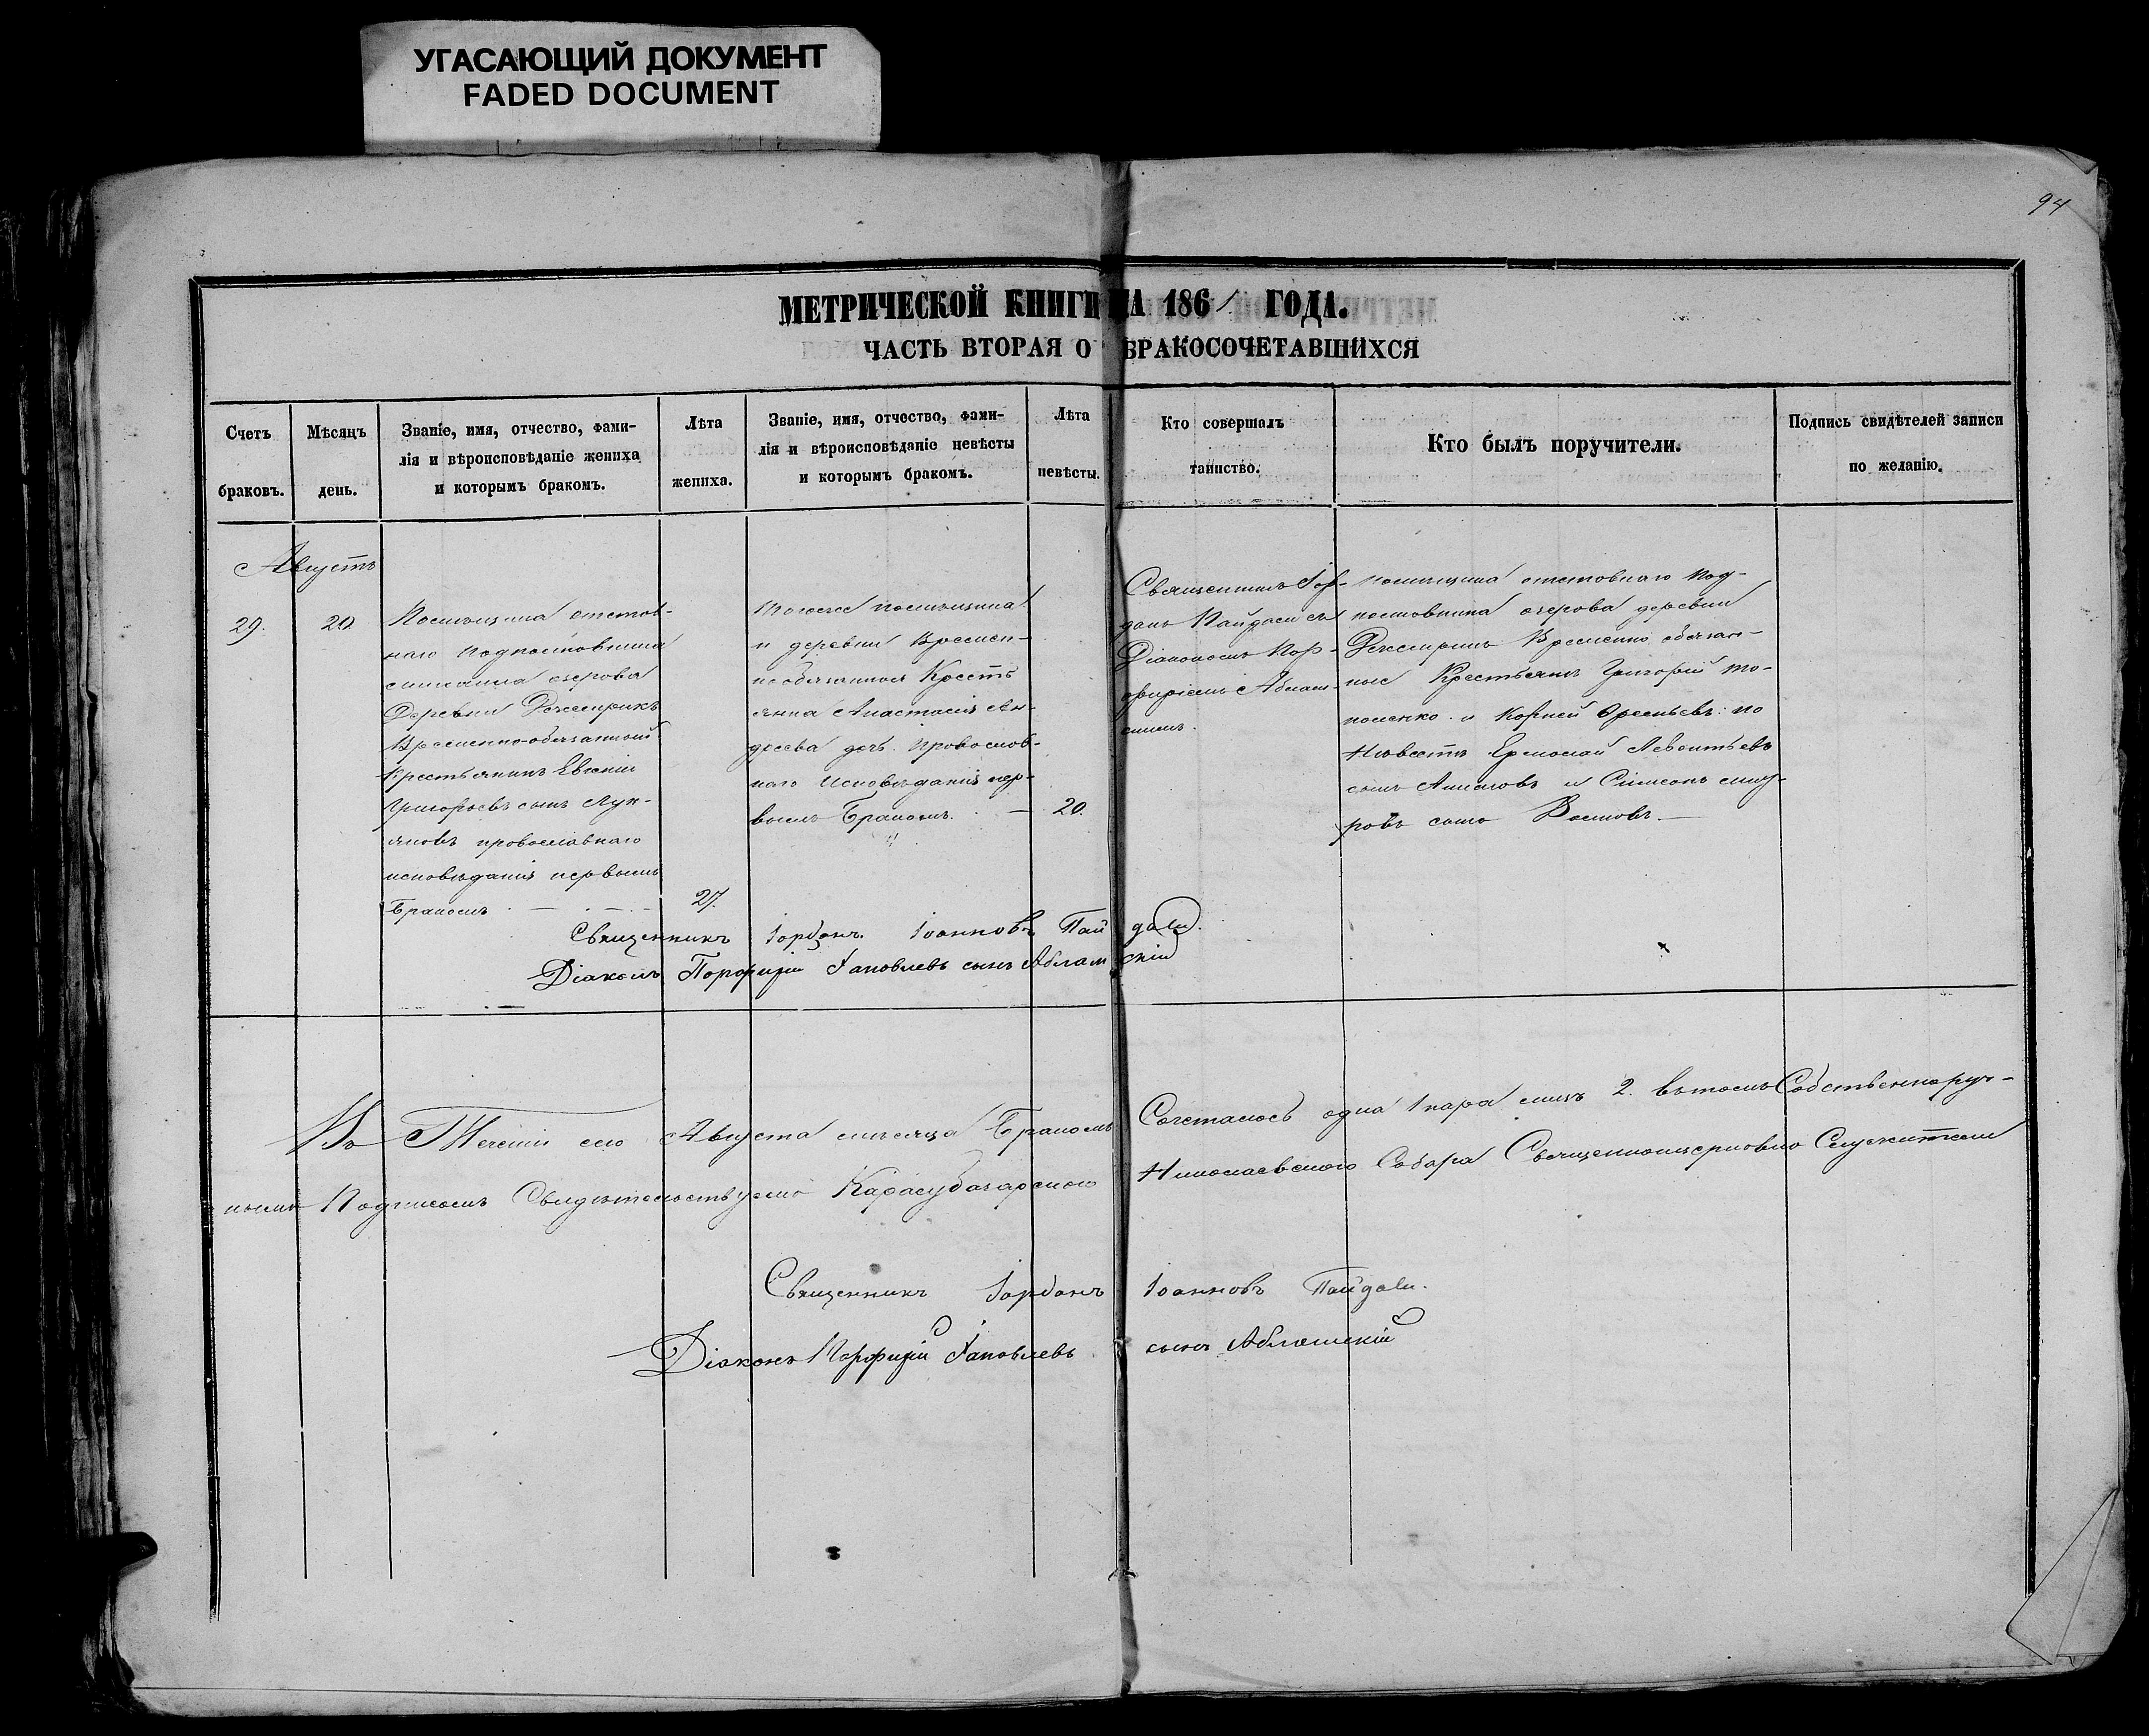 УГАСАЮЩИЙ ДОКУМЕНТ
FADED DOCUMENT
94
МЕТРИЧЕСКОЙ КНИГИ НА 1861 ГОДА.
ЧАСТЬ ВТОРАЯ О БРАКОСОЧЕТАВШИХСЯ
Счетъ
браковъ.
Мѣсяцъ
день.
Званіе, имя, отчество, фами-
лія и вѣроисповѣданіе жениха
и которымъ бракомъ.
Лѣта
жениха.
Званіе, имя, отчество, фами-
лія и вѣроисповѣданіе невѣсты
и которымъ бракомъ.
Лѣта
невѣсты.
Кто совершалъ
таинство.
Кто былъ поручители.
Подпись свидѣтелей записи
по желанію.
Августъ
29.
20
Помѣщика отстав-
наго Подполковника
Деревни
Временно-обязанный
Крестьянинъ Евгеній
Григорьевъ сынъ Лук-
яновъ провославнаго
исповѣданія первымъ
Бракомъ
27.
Тогоже помѣщика
и деревни Времен-
нообязанная Крестъ
янка Анастасія Ан-
дреева дочь провослов-
наго Исповѣданія пер-
вымъ Бракомъ.
20.
Священникъ Іор-
данъ Пайдаси съ
Діакономъ Пор-
фиріемъ Аблам-
скимъ.
помѣщика отставнаго под-
полковника деревни
Временно обязан-
ные Крестьяне Григорій
и Корней по
Невѣстѣ Ермолай Леонтьевъ
сынъ и Симеонъ
сынъ
Священникъ Іорданъ Іоанновъ
Діаконъ Порфирій Іаковлевъ сынъ Абламскій
Въ Теченіи сего Августа мѣсяца Бракомъ Сочеталось одна 1 пара лицъ 2. вътомъ Собственноруч-
нымъ Подписомъ Свидѣтельствуемъ Карасубазарскаго Николаевскаго Собора Священноцерковно Служители
Священникъ Іорданъ Іоанновъ
Діаконъ Порфирій Іаковлевъ сынъ Абламскій